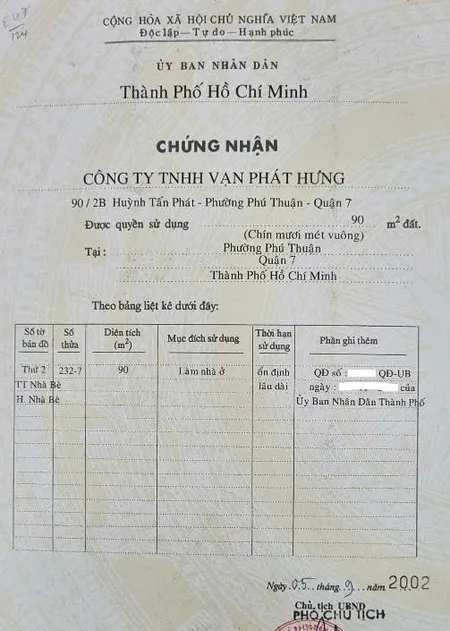 CỘNG HÒA XÃ HỘI CHỦ NGHĨA VIỆT NAM
Độc lập — Tự do — Hạnh phúc
ỦY BAN NHÂN DÂN
Thành Phố Hồ Chí Minh
CHỨNG NHẬN
CÔNG TY TNHH VẠN PHÁT HƯNG
90 / 2B Huỳnh Tấn Phát - Phường Phú Thuận - Quận 7
Được quyền sử dụng 90 m² đất.
(Chín mươi mét vuông)
Tại : Phường Phú Thuận
Quận 7
Thành Phố Hồ Chí Minh
Theo bảng liệt kê dưới đây:
Số tờ bản đồ Số thửa Diện tích (m²) Mục đích sử dụng Thời hạn sử dụng Phần ghi thêm
Thứ 2 232-7 90 Làm nhà ở ổn định QĐ số : QĐ-UB
TT Nhà Bè lâu dài ngày : của
H. Nhà Bè Ủy Ban Nhân Dân Thành Phố
Ngày 05 tháng 9 năm 2002
Chủ tịch UBND
PHÓ CHỦ TỊCH